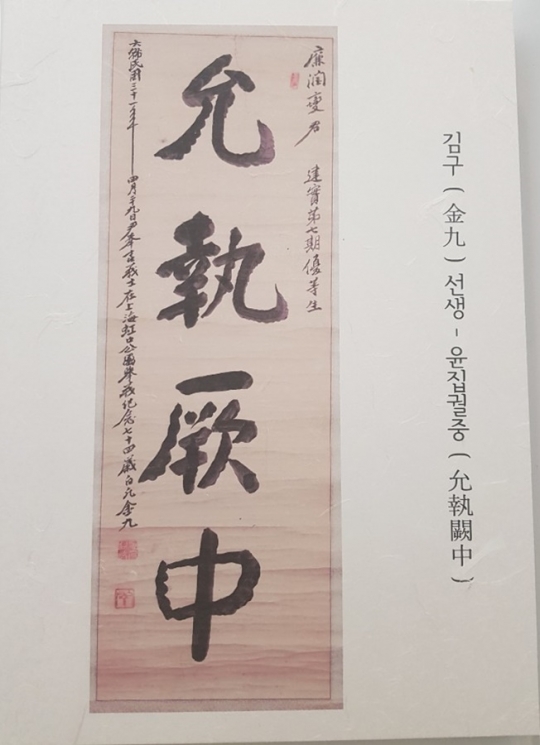 김구 ( 金九 ) 선생 - 윤집궐중 ( 允執闕中 )
廉潤燮君 建實第七期優等生
允執厥中
大韓民國三十一年 四月廿九日尹奉吉義士在上海虹口公園擧義紀念七十四歲白凡金九